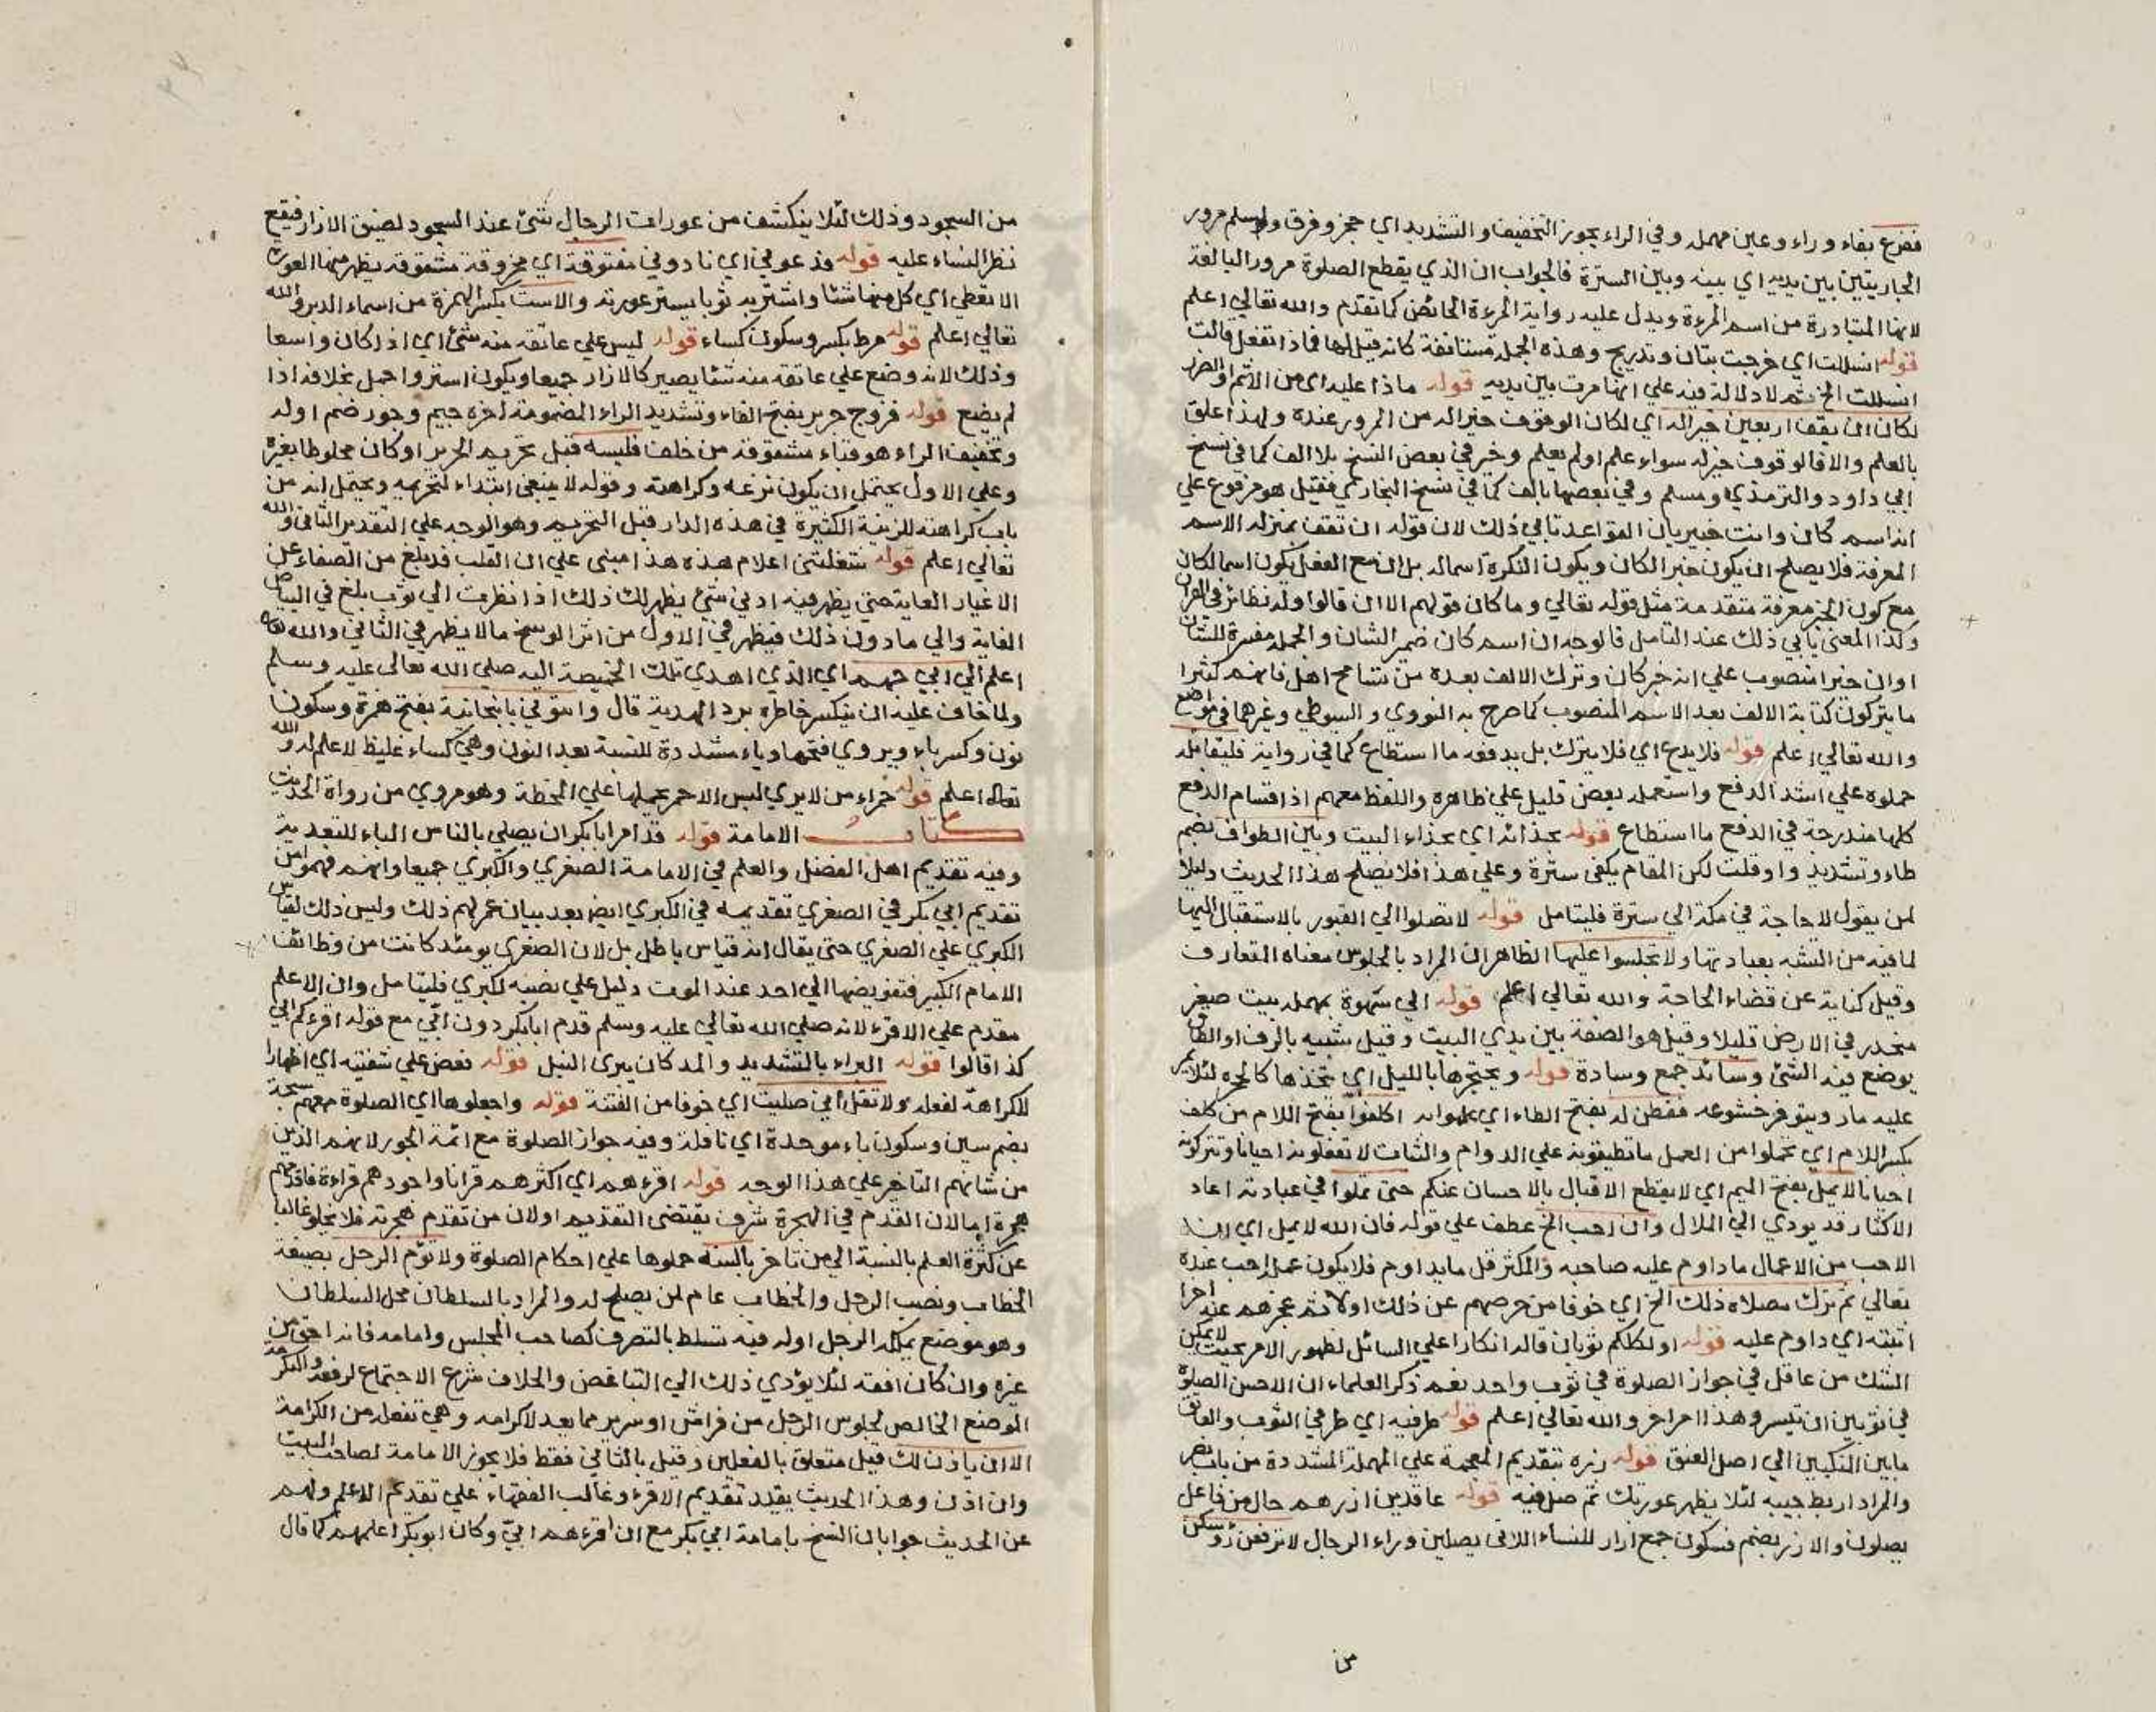 ففرع بفاء وراء وعين مهملة وفي الراء يجوز التخفيف والتشديد اي حجز وفرق ولمسلم مرور
الجاريتين بين يديه اي بينه وبين السترة فالجواب ان الذي يقطع الصلوة مرور البالغة
لانها المتبادرة من اسم المرءة ويدل عليه رواية المرءة الحائض كما تقدم والله تعالي اعلم
قوله انسللت اي خرجت بتان وتدريج وهذه الجملة مستانفة كانه قيل لها فماذا تفعل قالت
انسللت الخ ثم لا دلالة فيه علي انها مرت بين يديه قوله ماذا عليه اي من الاثم او الضرر
لكان ان يقف اربعين خير اله اي لكان الوقوف خيراله من المرور عنده ولهذا علق
بالعلم والا فالوقوف خيرله سواء علم اولم يعلم وخير في بعض النسخ بلا الف كما في نسخ
ابي داود والترمذي ومسلم وفي بعضها بالف كما في نسخ البخاري فقيل هو مرفوع علي
انه اسم كان وانت خبير بان القواعد تابي ذلك لان قوله ان تقف بمنزله الاسم
المعرفة فلا يصلح ان يكون خبر الكان ويكون النكرة اسماله بل ان مع الفعل يكون اسما لكان
مع كون الخبر معرفة متقدمة مثل قوله تعالي وما كان قولهم الا ان قالوا وله نظائر في القرآن
وكذا المعني يابي ذلك عند التامل فالوجه ان اسم كان ضمير الشان والجملة مفسرة للشان
اوان خيرا منصوب علي انه خبر كان وترك الالف بعده من تسامح اهل فانهم كثيرا
ما يتركون كتابة الالف بعد الاسم المنصوب كما صرح به النووي و السيوطي وغيرهما في مواضع
والله تعالي اعلم قوله فلا يدع اي فلا يترك بل يدفعه ما استطاع كما في رواية فليقاتله
حملوه علي اشد الدفع واستعمله بعض قليل علي ظاهره واللفظ معهم اذ اقسام الدفع
كلها مندرجة في الدفع ما استطاع قوله بحذائه اي بحذاء البيت وبين الطواف بضم
طاء وتشديد واو قلت لكن المقام يكفي سترة وعلي هذا فلا يصلح هذا الحديث دليلا
لمن يقول لا حاجة في مكة الي سترة فليتامل قوله لا تصلوا الي القبور بالاستقبال اليها
لما فيه من التشبه بعبادتها ولا تجلسوا عليها الظاهر ان المراد بالجلوس معناه المتعارف
وقيل كناية عن قضاء الحاجة والله تعالي اعلم قوله الي سهوة بمهملة بيت صغير
منحدر في الارض قليلا وقيل هو الصفة بين يدي البيت وقيل شبيه بالرف او الطاق
يوضع فيه الشئ وسائد جمع وسادة قوله ويحتجرها بالليل اي يتخذها كالحجرة لئلا يمر
عليه مار ويتوفر خشوعه ففطن له بفتح الطاء اي علموا به اكلفوا بفتح اللام من كلف
بكسر اللام اي تحملوا من العمل ما تطيقونه علي الدوام والثبات لا تفعلونه احيانا وتتركونه
احيانا لا يمل بفتح الميم اي لا يقطع الاقبال بالاحسان عنكم حتي تملوا في عبادته اعاد
الاكثار قد يودي الي الملال وان احب الخ عطف علي قوله فان الله لا يمل اي ان
الاحب من الاعمال ما داوم عليه صاحبه والمكثر قل ما يداوم فلا يكون عمله احب عنده
تعالي ثم ترك مصلاه ذلك الخ اي خوفا من حرصهم عن ذلك اولا ثم عجزهم عنه اخرا
اثبته اي داوم عليه قوله اولكلكم ثوبان قاله انكارا علي السائل لظهور الامر بحيث لا يمكن
الشك من عاقل في جواز الصلوة في ثوب واحد نعم ذكر العلماء ان الاحسن الصلوة
في ثوبين ان تيسر وهذا امر اخر والله تعالي اعلم قوله طرفيه اي طرفي الثوب والعاتق
ما بين المنكبين الي اصل العنق قوله زره بتقديم المعجمة علي المهملة المشددة من باب نصر
والمراد اربط جيبه لئلا يظهر عورتك ثم صل فيه قوله عاقدين ازرهم حال من فاعل
يصلون والازر بضم فسكون جمع ازار للنساء اللاتي يصلين وراء الرجال لا ترفعن رؤسكن
من
من السجود وذلك لئلا ينكشف من عورات الرجال شئ عند السجود لضيق الازار فيقع
نظر النساء عليه قوله فدعوني اي نادوني مفتوقة اي مخروقة مشقوقة يظهر منها العورة
الا تغطي اي كل منها شئا واشتريه ثوبا يستر عورته والاست بكسر الهمزة من اسماء الدبر والله
تعالي اعلم قوله مرط بكسر وسكون كساء قوله ليس علي عاتقه منه شئ اي اذ كان واسعا
وذلك لانه وضع علي عاتقه منه شئا يصير كالازار جميعا ويكون استر واجمل بخلاف اذا
لم يضع قوله فروج حرير بفتح الفاء وتشديد الراء المضمومة اخره جيم وجوز ضم اوله
وتخفيف الراء هو قباء مشقوقة من خلف فلبسه قبل تحريم الحرير او كان مخلوطا بغيره
وعلي الاول يحتمل ان يكون نزعه وكراهته وقوله لا ينبغي ابتداء لتحريمه ويحتمل انه من
باب كراهته للزينة الكثيرة في هذه الدار قبل التحريم وهو الوجه علي التقدير الثاني والله
تعالي اعلم قوله شغلتني اعلام هذه هذا مبني علي ان القلب قد بلغ من الصفاء عن
الاغيار الغاية حتي يظهر فيه ادني شئ يظهر لك ذلك اذا نظرت الي ثوب بلغ في البياض
الغاية والي ما دون ذلك فيظهر في الاول من اثر الوسخ ما لا يظهر في الثاني والله تعه
اعلم الي ابي جهم اي الذي اهدي تلك الخميصة اليه صلي الله تعالي عليه وسلم
ولما خاف عليه ان ينكسر خاطره برد الهدية قال وائتوني بانبجانية بفتح همزة وسكون
نون وكسر باء ويروي فتحها وياء مشددة للنسبة بعد النون وهي كساء غليظ لا علم له والله
تعالي اعلم قوله حمراء من لا يري لبس الاحمر يحملها علي المخططة وهو مروي من رواة الحديث
كتاب الامامة قوله قد امر ابا بكر ان يصلي بالناس الباء للتعدية
وفيه تقديم اهل الفضل والعلم في الامامة الصغري والكبري جميعا وانهم فهموا من
تقديم ابي بكر في الصغري تقديمه في الكبري ايضا بعد بيان عمر لهم ذلك وليس ذلك لقياس
الكبري علي الصغري حتي يقال انه قياس باطل بل لان الصغري يومئذ كانت من وظائف
الامام الكبير فتفويضها الي احد عند الموت دليل علي نصبه للكبري فليتامل وان الاعلم
مقدم علي الاقرء لانه صلي الله تعالي عليه وسلم قدم ابا بكر دون ابي مع قوله اقرءكم ابي
كذا قالوا قوله البراء بالتشديد والمد كان يبري النبل قوله فعض علي شفتيه اي اظهارا
للكراهة لفعله ولا تقل اني صليت اي خوفا من الفتنة قوله واجعلوها اي الصلوة معهم سبحة
بضم سين وسكون باء موحدة اي نافلة وفيه جواز الصلوة مع ائمة الجور لانهم الذين
من شانهم التاخير علي هذا الوجه قوله اقرءهم اي اكثرهم قرانا واجودهم قراءة فاقدمهم
هجرة اما لان القدم في الهجرة شرف يقتضي التقديم او لان من تقدم هجرته فلا يخلو غالبا
عن كثرة العلم بالنسبة الي من تاخر بالسنة حملوها علي احكام الصلوة ولا تؤم الرجل بصيغة
الخطاب ونصب الرجل والخطاب عام لمن يصلح له والمراد بالسلطان محل السلطان
وهو موضع يملكه الرجل اوله فيه تسلط بالتصرف كصاحب المجلس وامامه فانه احق من
غيره وان كان افقه لئلا يؤدي ذلك الي التباغض والخلاف شرع الاجتماع لرفعه والتكرمة
الموضع الخالص لجلوس الرجل من فراش او سرير مما يعد لاكرامه وهي تفعلة من الكرامة
الا ان ياذن لك قيل متعلق بالفعلين وقيل بالثاني فقط فلا يجوز الامامة لصاحب البيت
وان اذن وهذا الحديث يفيد تقديم الاقرء وغالب الفقهاء علي تقديم الاعلم ولهم
عن الحديث جوابان النسخ بامامة ابي بكر مع ان اقرءهم ابيّ وكان ابو بكر اعلمهم كما قال